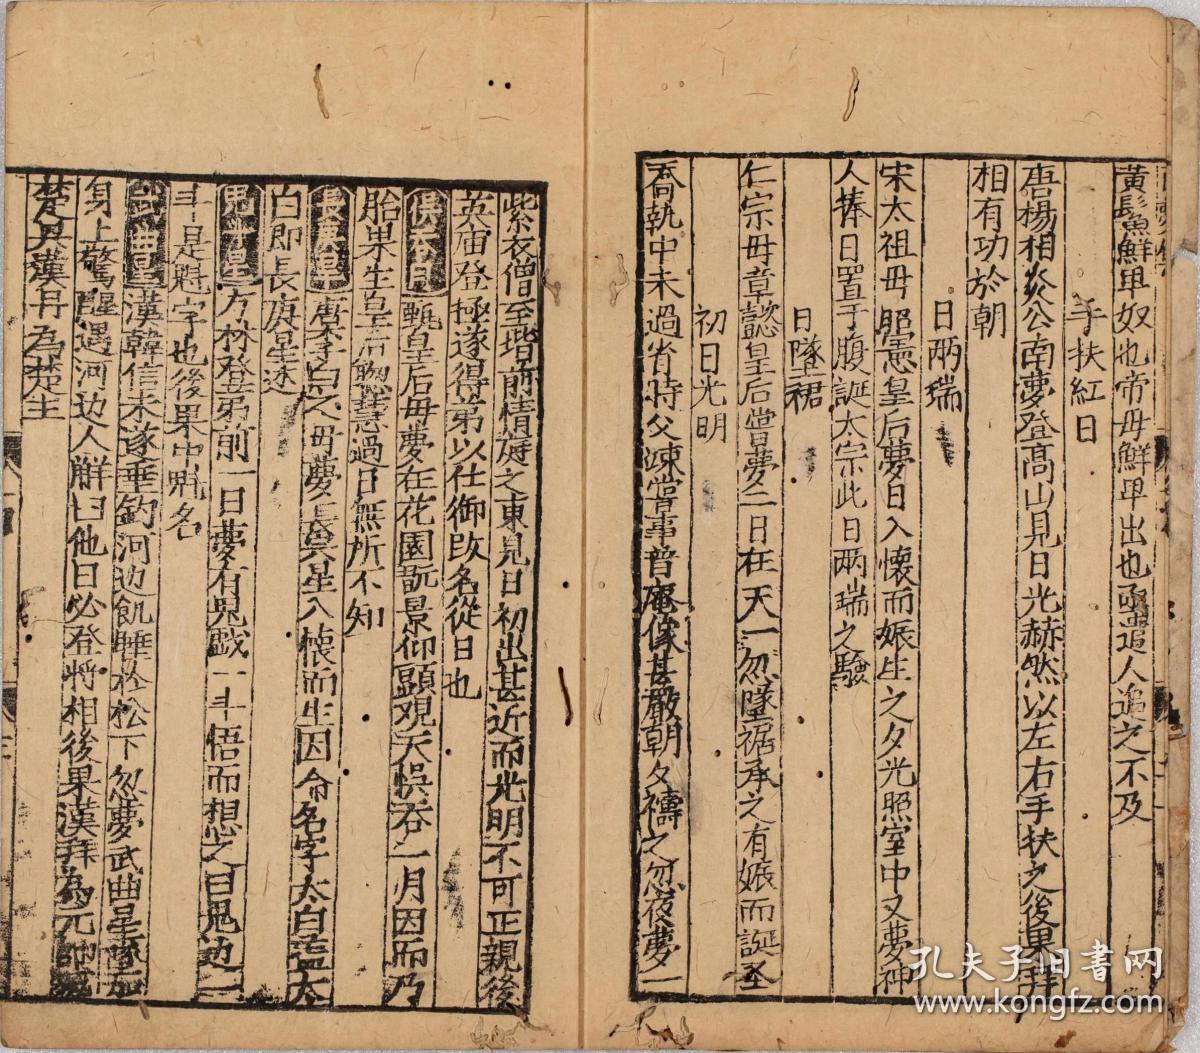 黃鬚鮮卑奴也帝母鮮卑出也亟遣人追之不及
手扶紅日
唐楊相炎公南夢登高山見日光赫然以左右手扶之後果拜
相有功於朝
日兩瑞
宋太祖母昭憲皇后夢日入懷而娠生之夕光照室中又夢神
人捧日置于腹誕太宗此日兩瑞之驗
日墜裙
仁宗母章懿皇后嘗夢二日在天一忽墜裾承之有娠而誕圣
初日光明
喬執中未過省時父竦嘗事普庵像甚嚴朝夕禱之忽夜夢一
紫衣僧至堦前情旋之東見日初出甚近而光明不可正親後
英庙登極遂得弟以仕御改名從日也
甄皇后母夢在花園翫景仰顕观天悞吞一月因而乃
胎果生皇后聰慧過日無所不知
長庚星唐李白之母夢長庚星入懷而生因命名字太白盖太
白即長庚星述
鬼斗星方林登弟前一日夢有鬼戯一斗悟而想之曰鬼边一
斗是魁字也後果中魁名
武曲星漢韓信未遂垂釣河边飢睡於松下忽夢武曲星墜如
身上驚醒遇河边人觧曰他日必登将相後果漢拜為元帥
楚人漢丹為楚主
孔夫子旧書网
www.kongfz.com